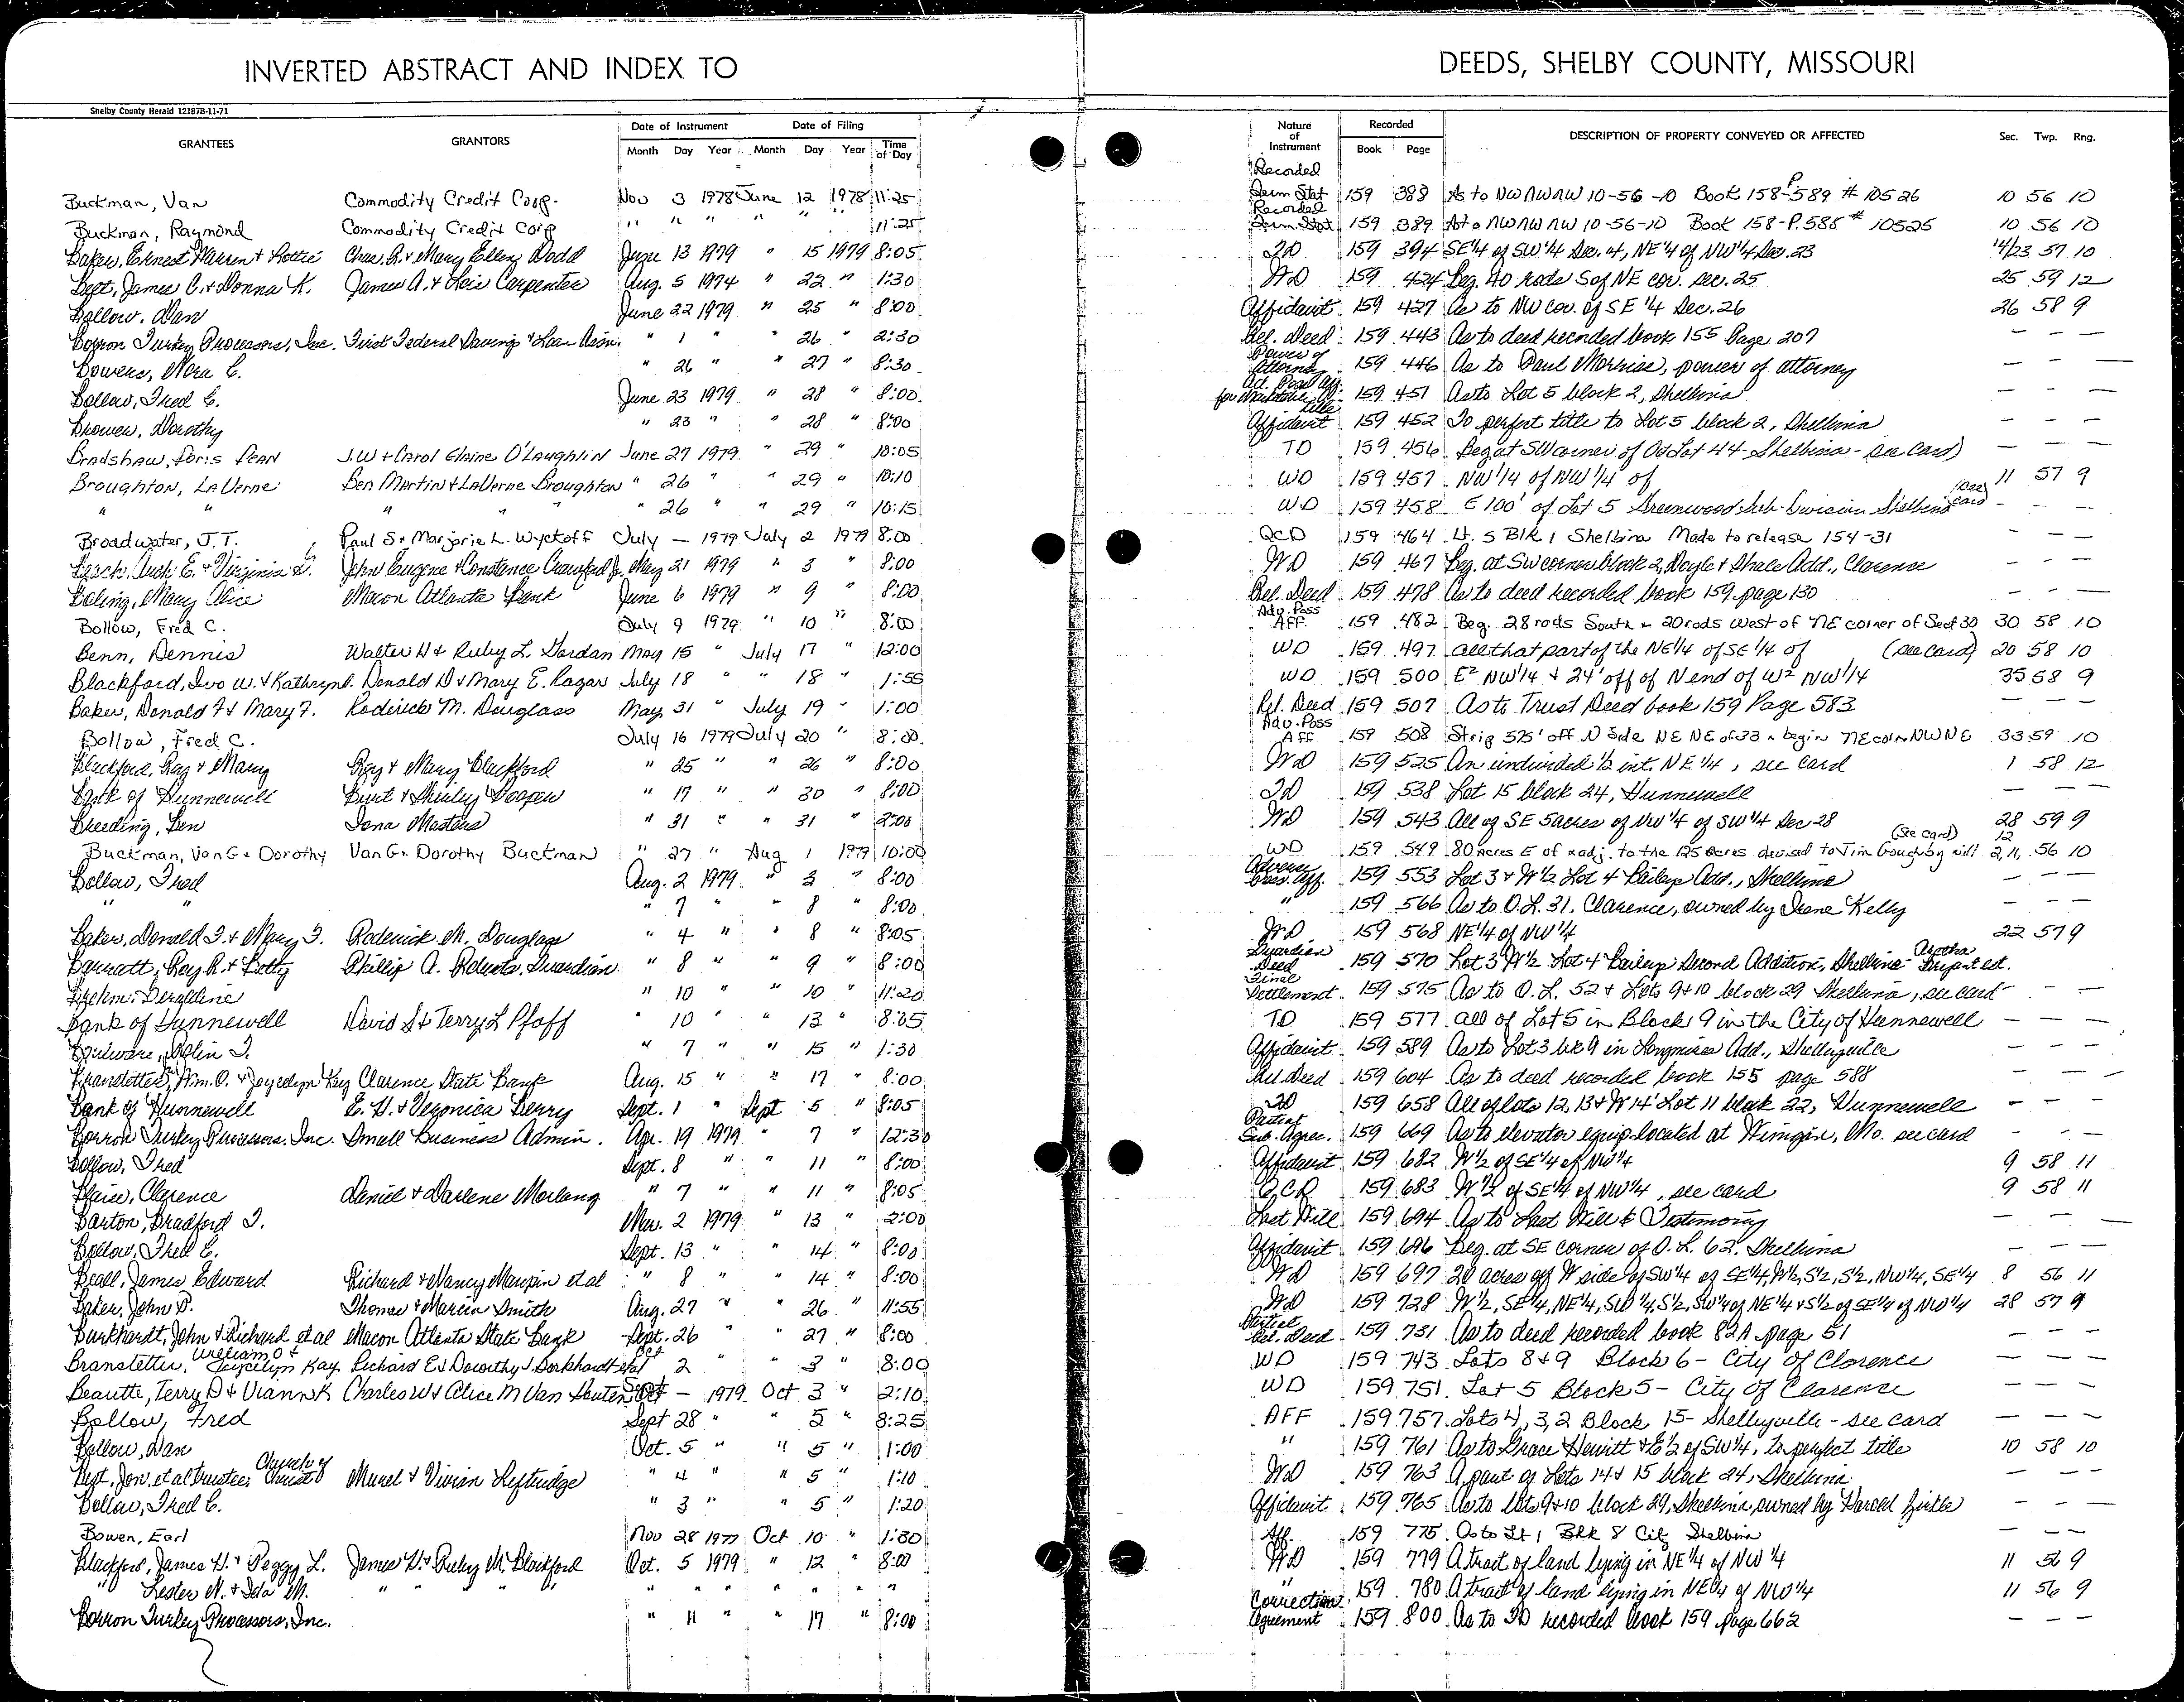 INVERTED ABSTRACT AND INDEX TO DEEDS, SHELBY COUNTY, MISSOURI
Shelby County Herald 12187B-11-71
GRANTEES GRANTORS Date of Instrument Date of Filing Nature of Instrument Recorded DESCRIPTION OF PROPERTY CONVEYED OR AFFECTED Sec. Twp. Rng.
Month Day Year Month Day Year Time of Day Book Page
Buckman, Van Commodity Credit Corp. Nov 3 1978 June 12 1978 11:25 Recorded Term Stat 159 388 As to NWNWNW 10-56-10 Book 158-P589 # 10526 10 56 10
Buckman, Raymond Commodity Credit Corp " " " " " " 11:25 Recorded Term Stat 159 389 As to NWNWNW 10-56-10 Book 158-P.588 # 10525 10 56 10
Baker, Ernest Warren & Lottie Chas. R. & Mary Ellen Dodd June 13 1979 " 15 1979 8:05 TD 159 394 SE¼ of SW¼ Sec. 14, NE¼ of NW¼ Sec. 23 14/23 57 10
Bept, James C. & Donna K. James A. & Lois Carpenter Aug. 5 1974 " 22 " 1:30 WD 159 424 Beg. 40 rods S of NE cor. sec. 25 25 59 12
Bollow, Dan June 22 1979 " 25 " 8:00 Affidavit 159 427 As to NW cor. of SE ¼ Sec. 26 26 58 9
Borron Turkey Processors, Inc. First Federal Savings & Loan Assn. " 1 " " 26 " 2:30 Rel. Deed 159 443 As to deed recorded book 155 Page 207 - - -
Bowers, Nora C. " 26 " " 27 " 8:30 Power of Attorney 159 446 As to Paul Morriss, power of attorney - - -
Bollow, Fred C. June 23 1979 " 28 " 8:00 Ad. Poss Aff. for Marketable title 159 451 As to Lot 5 block 2, Shelbina - - -
Brower, Dorothy " 23 " " 28 " 8:00 Affidavit 159 452 To perfect title to Lot 5 block 2, Shelbina - - -
Bradshaw, Doris Dean J.W & Carol Elaine O'Laughlin June 27 1979 " 29 " 10:05 TD 159 456 Beg at SW corner of Od Lot 44 - Shelbina - see card) - - -
Broughton, LaVerne Ben Martin & LaVerne Broughton " 26 " " 29 " 10:10 WD 159 457 NW¼ of NW¼ of 11 57 9
" " " " " " 26 " " 29 " 10:15 WD 159 458 E 100' of Lot 5 Greenwood Sub-Division Shelbina (see card) - - -
Broadwater, J.T. Paul S & Marjorie L. Wyckoff July - 1979 July 2 1979 8:00 QCD 159 464 Lt. 5 Blk 1 Shelbina Made to release 154-31 - - -
Beach, Arch E. & Virginia G. John Eugene & Constance Crawford Jr. May 21 1979 " 3 " 8:00 WD 159 467 Beg. at SW corner block 2, Doyle & Shale Add., Clarence - - -
Boling, Mary Alice Macon Atlanta Bank June 6 1979 " 9 " 8:00 Rel. Deed 159 478 As to deed recorded book 159 page 130 - - -
Bollow, Fred C. July 9 1979 " 10 " 8:00 Adv. Poss AFF. 159 482 Beg. 28 rods South & 20 rods West of NE corner of Sect 30 30 58 10
Benn, Dennis Walter H & Ruby L. Jordan May 15 " July 17 " 12:00 WD 159 497 all that part of the NE¼ of SE¼ of (see card) 20 58 10
Blackford, Ivo W. & Kathryn L. Donald D & Mary E. Ragar July 18 " " 18 " 1:55 WD 159 500 E² NW¼ & 24' off of N end of W² NW¼ 35 58 9
Baker, Donald F & Mary F. Roderick M. Douglass May 31 " July 19 " 1:00 Rel. Deed 159 507 As to Trust Deed book 159 Page 583 - - -
Bollow, Fred C. July 16 1979 July 20 " 8:00 Adv. Poss Aff 159 508 Strip 575' off N Side NE NE of 33 & begin NE corn NWNE 33 59 10
Blackford, Ray & Mary Ray & Mary Blackford " 25 " " 26 " 8:00 WD 159 525 An undivided ½ int. NE¼, see card 1 58 12
Bank of Hunnewell Burt & Shirley Hooper " 17 " " 30 " 8:00 TD 159 538 Lot 15 block 24, Hunnewell - - -
Breeding, Ben Iona Masters " 31 " " 31 " 2:00 WD 159 543 All of SE 5 acres of NW¼ of SW¼ Sec 28 28 59 9
Buckman, Van G & Dorothy Van G & Dorothy Buckman " 27 " Aug 1 1979 10:00 WD 159 549 80 acres E of & adj. to the 125 acres devised to Jim Gough by will (see card) 2, 11, 12 56 10
Bollow, Fred Aug. 2 1979 " 3 " 8:00 Adverse Poss. Aff. 159 553 Lot 3 & W½ Lot 4 Bailey Add., Shelbina - - -
" " " 7 " " 8 " 8:00 " 159 566 As to O.L. 31, Clarence, owned by Irene Kelly - - -
Baker, Donald F. & Mary F. Roderick M. Douglass " 4 " " 8 " 8:05 WD 159 568 NE¼ of NW¼ 22 57 9
Barnatt, Roy R. & Betty Phillip A. Roberts, Guardian " 8 " " 9 " 8:00 Guardian Deed 159 570 Lot 3 W½ Lot 4 Bailey Second Addition, Shelbina - Aretha Bryant est.
Brehm, Geraldine " 10 " " 10 " 11:20 Final Settlement 159 575 As to O.L. 52 & Lots 9 & 10 block 29 Shelbina, see card - - -
Bank of Hunnewell David S & Terry L Pfoff " 10 " " 13 " 8:05 TD 159 577 all of Lot 5 in Block 9 in the City of Hunnewell - - -
" 7 " " 15 " 1:30 Affidavit 159 589 As to Lot 3 blk 9 in Longmires Add., Shelbyville - - -
Branstetter, Wm. O. & Joycelyn Kay Clarence State Bank Aug. 15 " " 17 " 8:00 Rel. Deed 159 604 As to deed recorded book 155 page 588 - - -
Bank of Hunnewell E. H. & Veronica Berry Sept. 1 " Sept 5 " 8:05 TD 159 658 All of lots 12, 13 & W 14' Lot 11 block 22, Hunnewell - - -
Borron Turkey Processors, Inc. Small Business Admin. Apr. 19 1979 " 7 " 12:30 Partial Sub. Agree. 159 669 As to elevator equip. located at Wimigin, Mo. see card - - -
Bollow, Fred Sept. 8 " " 11 " 8:00 Affidavit 159 682 W½ of SE¼ of NW¼ 9 58 11
Blaise, Clarence Daniel & Darlene Morlang " 7 " " 11 " 8:05 Q.C.D. 159 683 W½ of SE¼ of NW¼, see card 9 58 11
Barton, Bradford T. Mar. 2 1979 " 13 " 2:00 Last Will 159 694 As to Last Will & Testimony - - -
Bollow, Fred C. Sept. 13 " " 14 " 8:00 Affidavit 159 696 Beg. at SE corner of O.L. 62, Shelbina - - -
Beall, James Edward Richard & Nancy Maupin et al " 8 " " 14 " 8:00 WD 159 697 20 acres off W side of SW¼ of SE¼, W½, S½, S½, NW¼, SE¼ 8 56 11
Baker, John P. Thomas & Marcia Smith Aug. 27 " " 26 " 11:55 WD 159 728 W½, SE¼, NE¼, SW¼, S½, SW¼ of NE¼ & S½ of SE¼ of NW¼ 28 57 9
Burkhardt, John & Richard et al Macon Atlanta State Bank Sept. 26 " " 27 " 8:00 Partial Rel. Deed 159 731 As to deed recorded book 82A page 51 - - -
Branstetter, William O & Joycelyn Kay Richard E & Dorothy J. Burkhardt et al Oct 2 " 3 " 8:00 WD 159 743 Lots 8 & 9 Block 6 - City of Clarence - - -
Beautte, Terry D & Viann K Charles W & Alice M Van Houten Sept - 1979 Oct 3 " 2:10 WD 159 751 Lot 5 Block 5 - City of Clarence - - -
Bollow, Fred Sept 28 " " 5 " 8:25 AFF 159 757 Lots 4, 3, 2 Block 15 - Shelbyville - see card - - -
Bollow, Dan Oct. 5 " " 5 " 1:00 " 159 761 As to Grace Hewitt & E½ of SW¼, to perfect title 10 58 10
Bept, Jon. et al trustees Church of Christ Murel & Vivian Leftridge " 4 " " 5 " 1:10 WD 159 763 A part of Lots 14 & 15 block 24, Shelbina - - -
Bollow, Fred C. " 3 " " 5 " 1:20 Affidavit 159 765 As to lots 9 & 10 block 29, Shelbina, owned by Harold - - -
Bowen, Earl Nov 28 1977 Oct 10 " 1:30 Aff. 159 775 As to Lt 1 Blk 8 City Shelbina - - -
Blackford, James H. & Peggy L. James H. & Ruby M. Blackford Oct. 5 1979 " 12 " 8:00 WD 159 779 A tract of land lying in NE¼ of NW¼ 11 56 9
" Lester N. & Ida M. " " " " " " " " " " " 159 780 A tract of land lying in NE¼ of NW¼ 11 56 9
Borron Turkey Processors, Inc. " 11 " " 17 " 8:00 Correction Agreement 159 800 As to TD recorded book 159 page 662 - - -